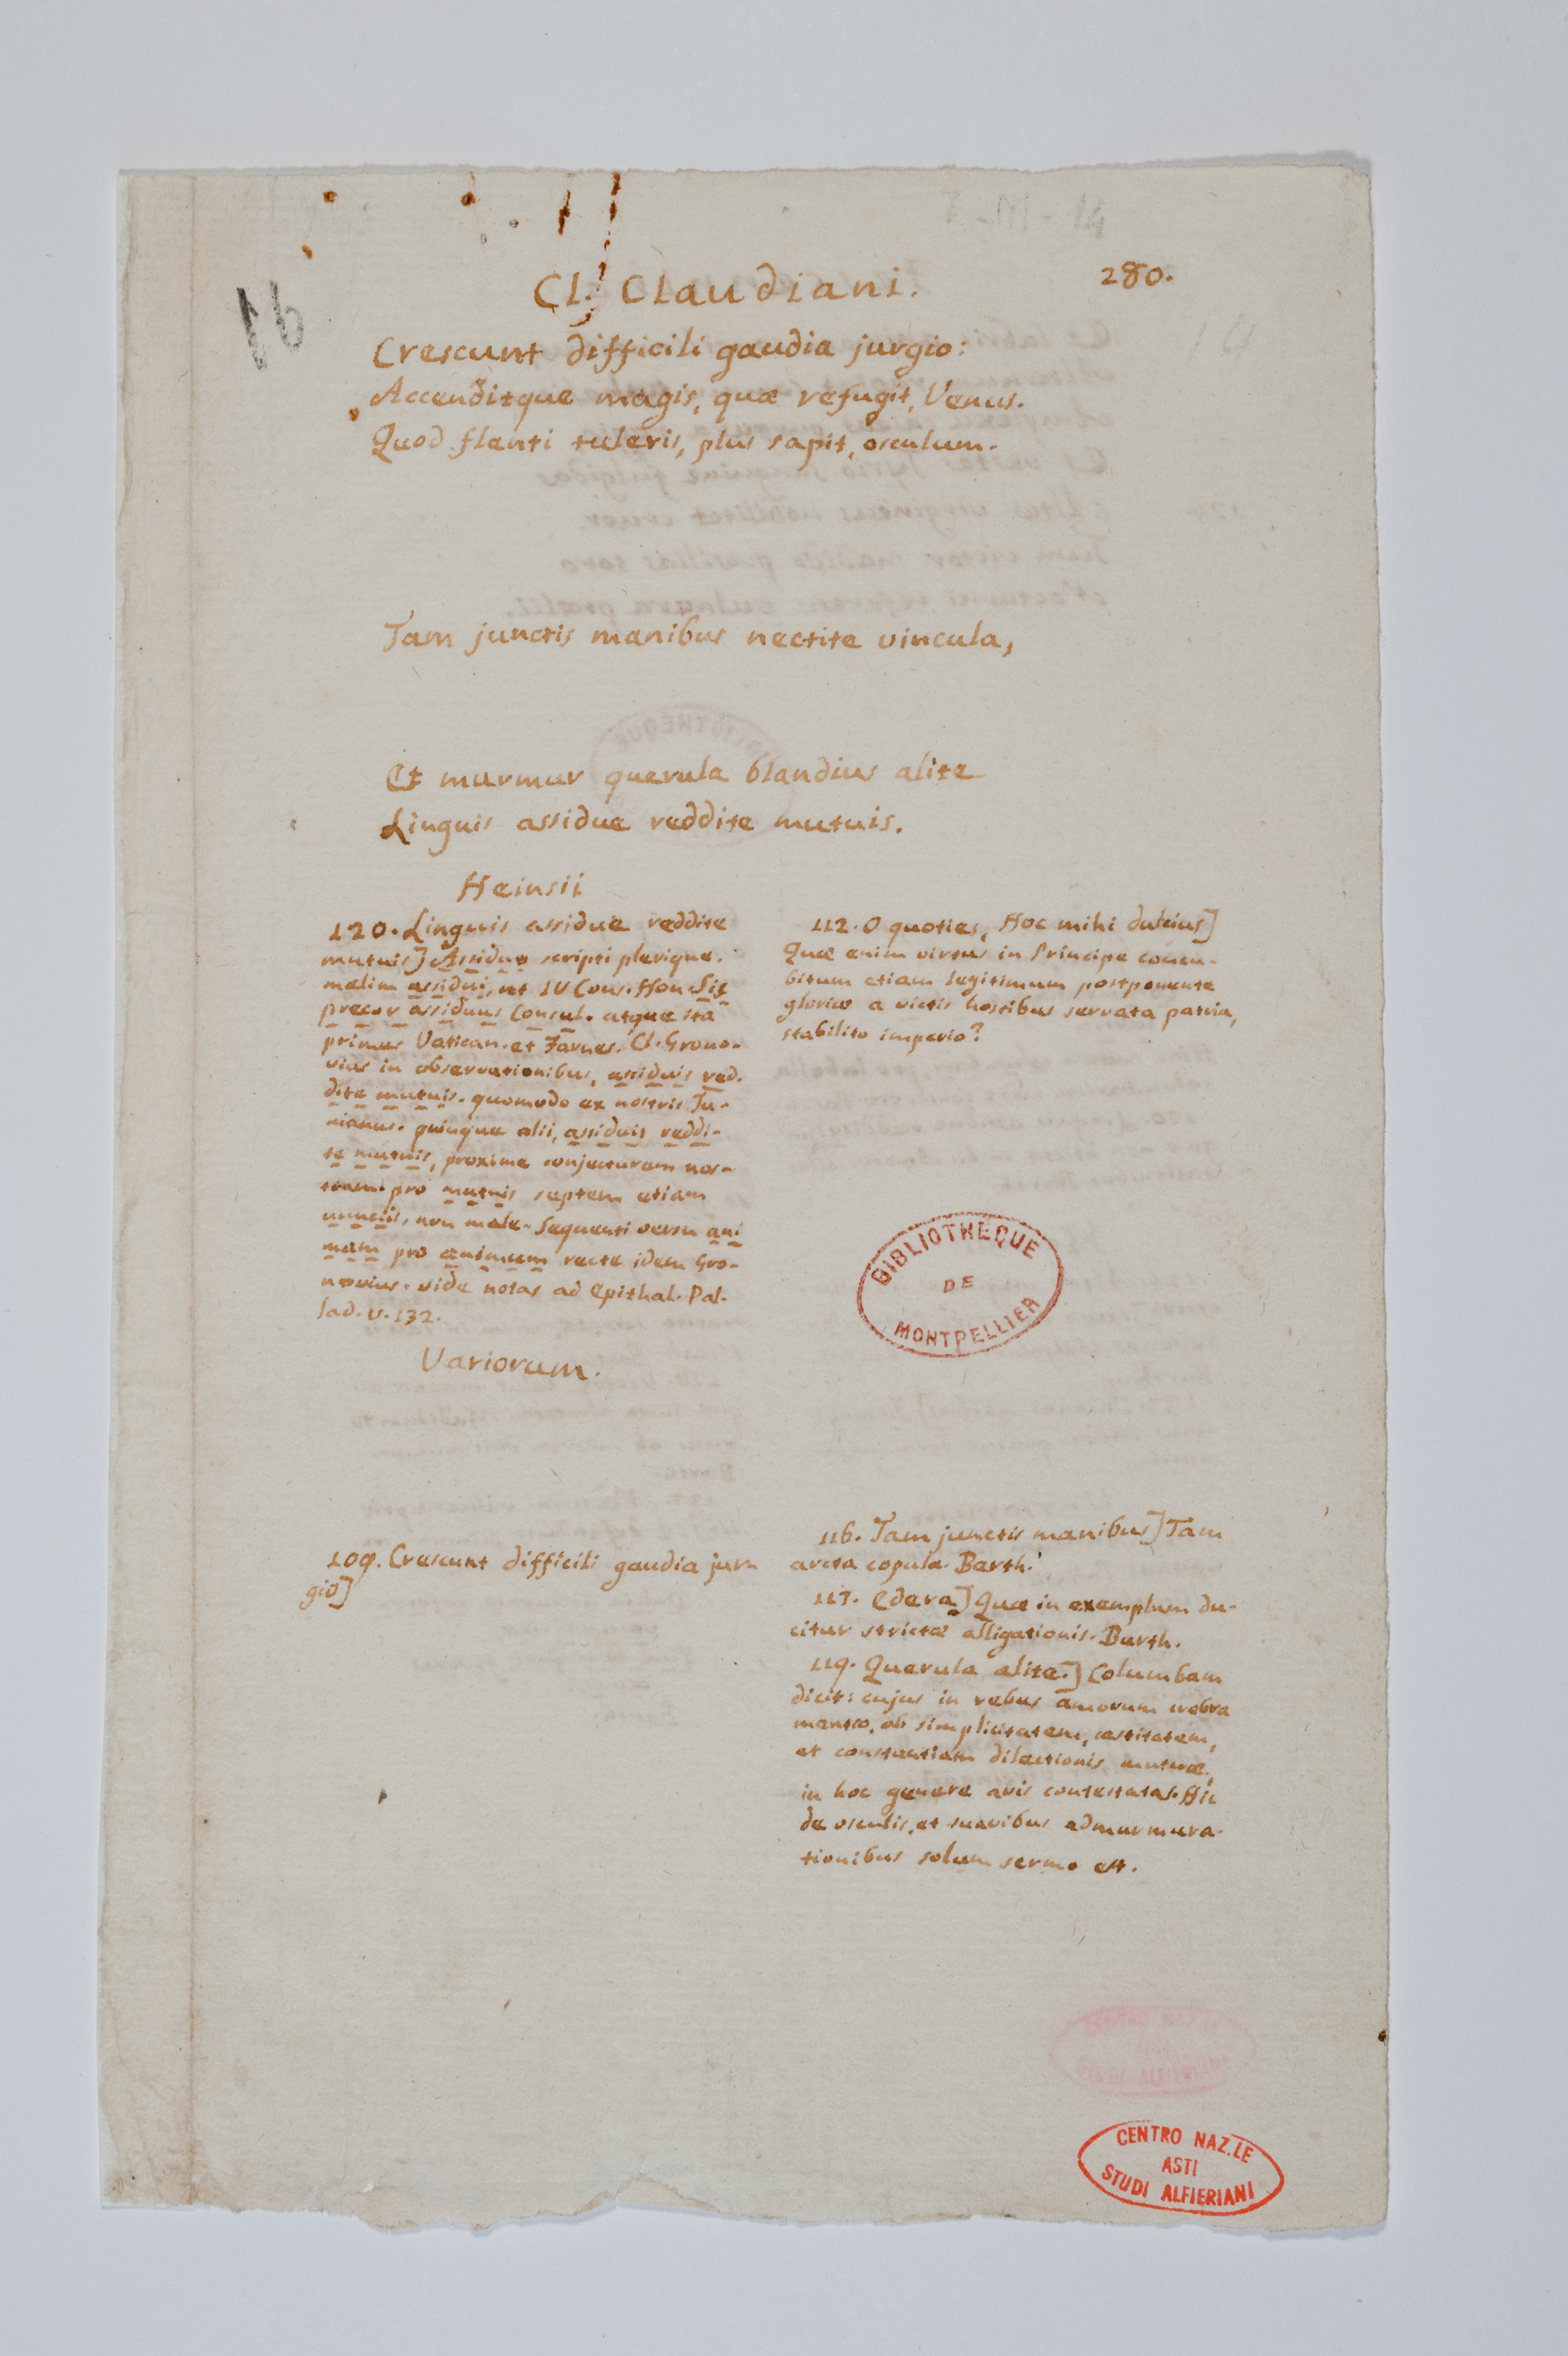 16
280.
Cl. Claudiani.
Crescunt difficili gaudia jurgio:
Accenditque magis, quæ refugit, Venus.
Quod flenti tuleris, plus sapit, osculum.
Tam junctis manibus nectite vincula,
Et murmur querula blandius alite
Linguis assidue reddite mutuis.
Heinsii
120. Linguis assidue reddite
mutuis] Assiduo scripti plerique.
malim assidui, ut IV Cons. Hon Sis
precor assiduus Consul. atque ita
primus Vatican. et Farnes. Cl. Grono-
vius in observationibus, assiduis red-
dite mutuis. quomodo ex nostris Ju-
nianus. quinque alii, assiduis reddi-
te mutuis, proxime conjecturam nos-
tram. pro mutuis septem etiam
nunciis, non male. Sequenti versu ani
mam pro animum recte idem Gro-
novius. vide notas ad Epithal. Pal-
lad. v. 132.
Variorum.
109. Crescunt difficili gaudia jur-
gio]
112. O quoties, Hoc mihi dulcius]
Quæ enim virtus in Principe concu-
bitum etiam legitimum postponente
gloriæ a victis hostibus servata patria,
stabilito imperio?
BIBLIOTHEQUE
DE
MONTPELLIER
116. Tam junctis manibus] Tam
arcta copula. Barth.
117. Edera] Quæ in exemplum du-
citur strictæ alligationis. Barth.
119. Querula alite.] Columbam
dicit: cujus in rebus amorum crebra
mentio, ob simplicitatem, castitatem,
et constantiam dilectionis mutuæ,
in hoc genere avis contestatas. Hic
de osculis, et suavibus admurmura-
tionibus solum sermo est.
CENTRO NAZ.LE
ASTI
STUDI ALFIERIANI